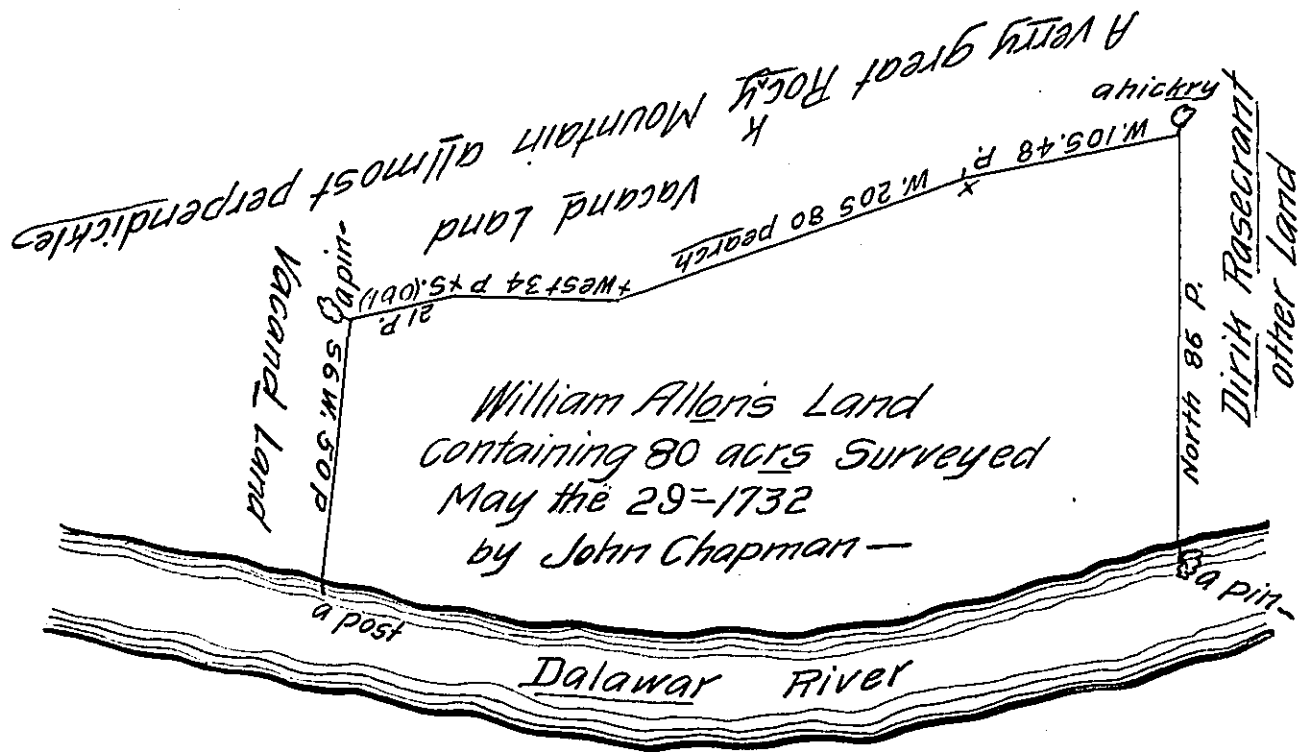 A verry great Rocky Mountain allmost perpendickle
Vacand Land
a hickry
W.10S.48 P.
W. 20S 80 pearch
West 34 P
S.(Obl)
21 P.
a pin
S6W. 50P
Vacand Land
North 86 P.
Dirik Rasecrant
other Land
William Allon's Land
containing 80 acrs Surveyed
May the 29=1732
by John Chapman—
a post
a pin
Dalawar River